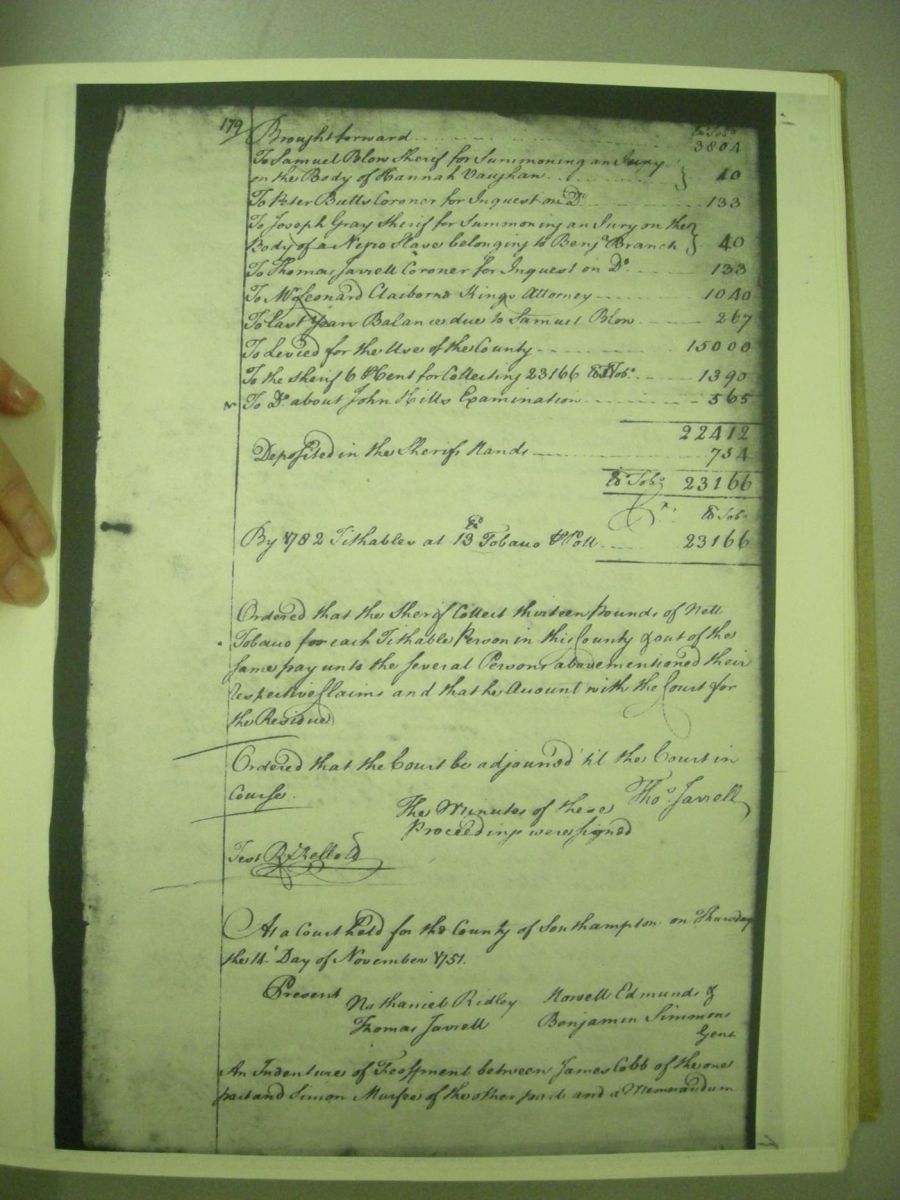 179 Brought forward 3804
To Samuel Blow Sherif for Summoning an Jury
on the Body of Hannah Vaughan } 40
To Peter Butts Coroner for Inquest on Do 133
To Joseph Gray Sherif for Summoning an Jury on the
Body of a Negro Slave belonging to Benja Branch } 40
To Thomas Jarrell Coroner for Inquest on Do 133
To Mr Leonard Claiborne Kings Attorney 1040
To last Years Balance due to Samuel Blow 267
To Levied for the Use of the County 15000
To the Sherif 6 Cent for Collecting 23166 Tobo 1390
To Do about John Hills Examination 565
22412
Deposited in the Sherifs Hands 754
Tobo 23166
Tobo
By 1782 Tithables at 13 Tobacco Poll 23166
Ordered that the Sherif Collect thirteen Pounds of Nett
Tobacco for each Tithable Person in this County & out of the
same pay unto the several Persons abovementioned their
respective Claims and that he Account with the Court for
the Residue
Ordered that the Court be adjourn'd 'til the Court in
Course.
Thos Jarrell
The Minutes of these
Proceedings were signed
Test
At a Court held for the County of Southampton on Thursday
the 14 Day of November 1751.
Present Nathaniel Ridley Howell Edmunds &
Thomas Jarrell Benjamin Simmons
Gent
An Indenture of Feoffment between James Cobb of the one
part and Simon Murfee of the other part and a Memorandum